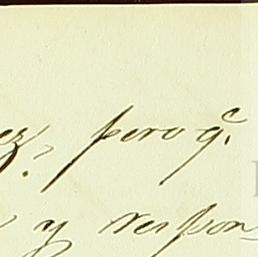 ez? pero q.e
y respon-